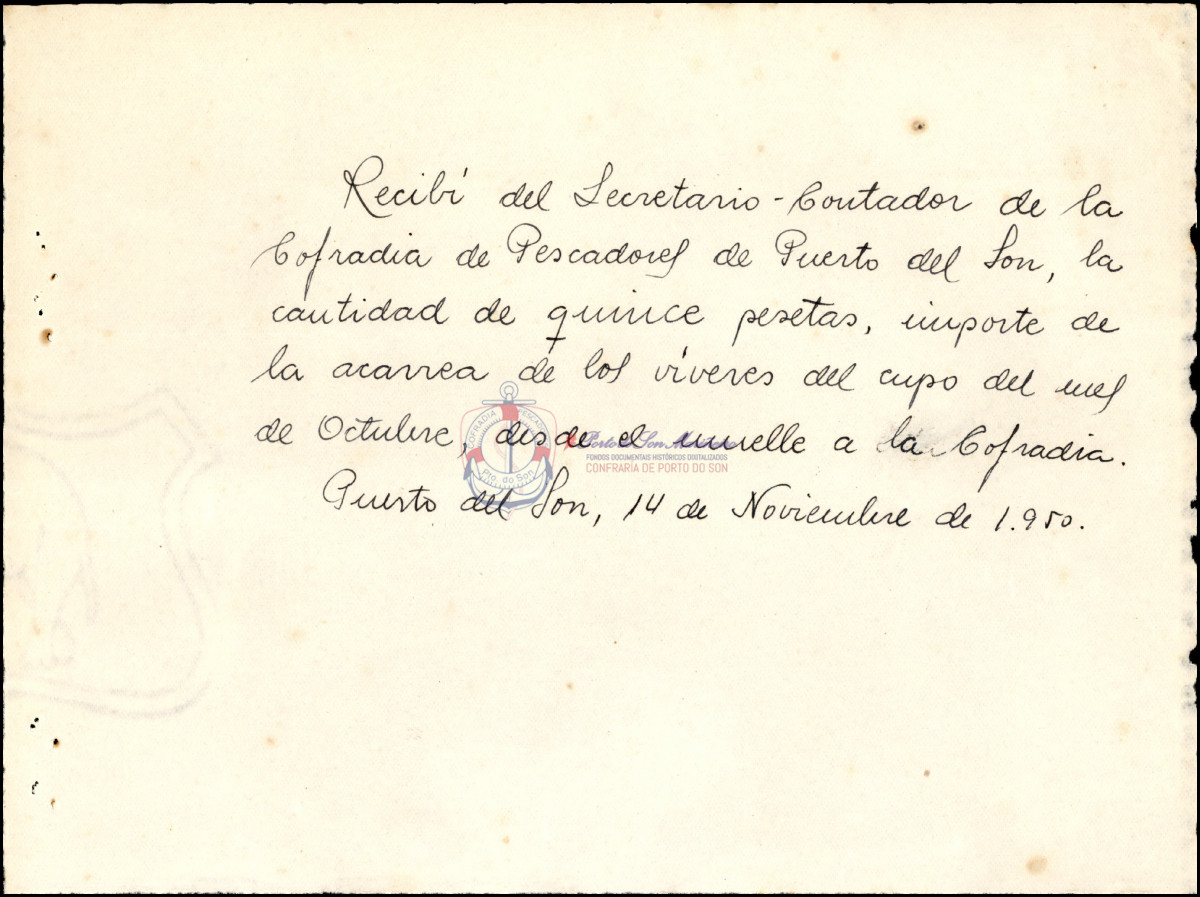 Recibí del Secretario-Contador de la
Cofradia de Pescadores de Puerto del Son, la
cantidad de quince pesetas, importe de
la acarrea de los víveres del cupo del mes
de Octubre, desde el muelle a la Cofradia.
Puerto del Son, 14 de Noviembre de 1.950.
COFRADIA PESCADORES
Pto. do Son
FONDOS DOCUMENTAIS HISTÓRICOS DIXITALIZADOS
CONFRARÍA DE PORTO DO SON